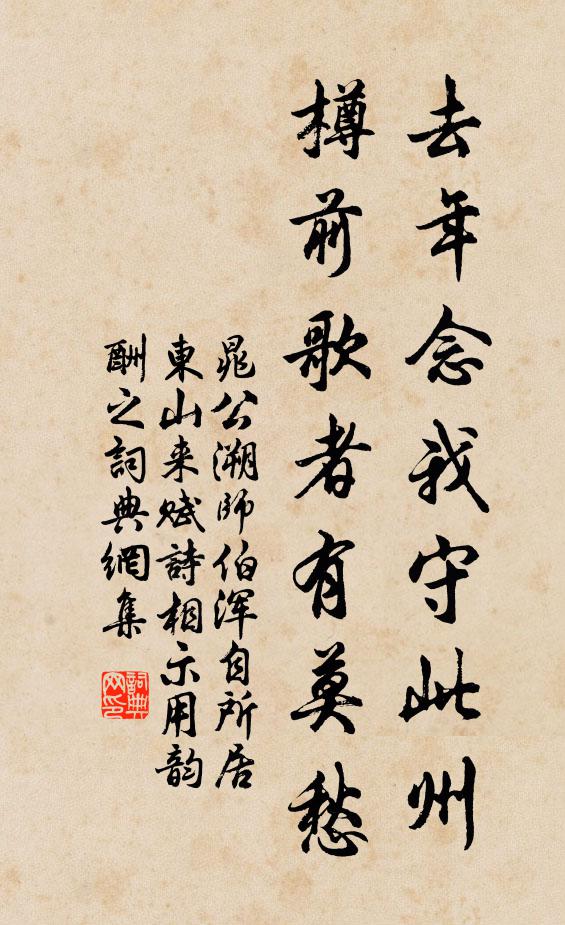 去年念我守此州
樽前歌者有莫愁
晁公溯師伯渾自所居
東山来賦詩相示用韵
酬之詞典網集
詞典网印